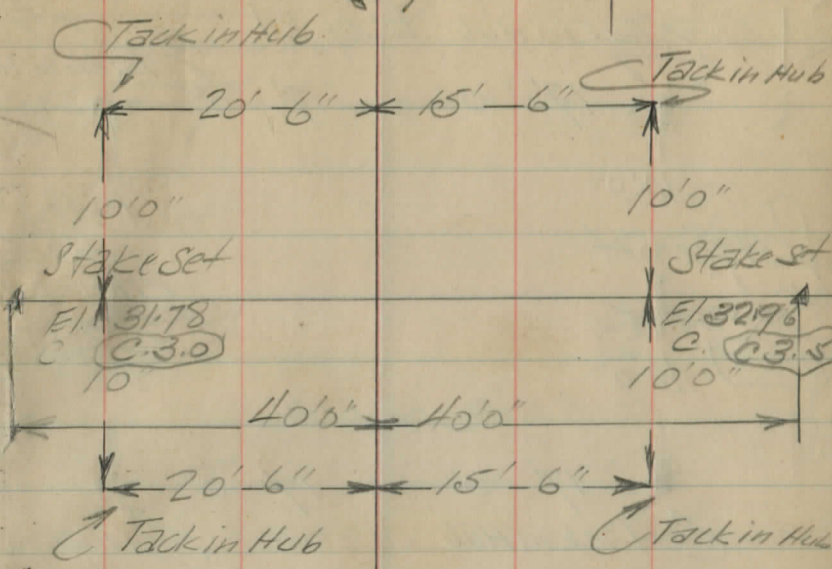 Tack in Hub.
Tack in Hub
20' 6" 15' 6"
10'0" 10'0"
Stake set Stake set
El. 31.78 El 32.96
C C.3.0 C. C 3.5
10" 10'0"
40'0" 40'0"
20' 6" 15' 6"
Tack in Hub Tack in Hub